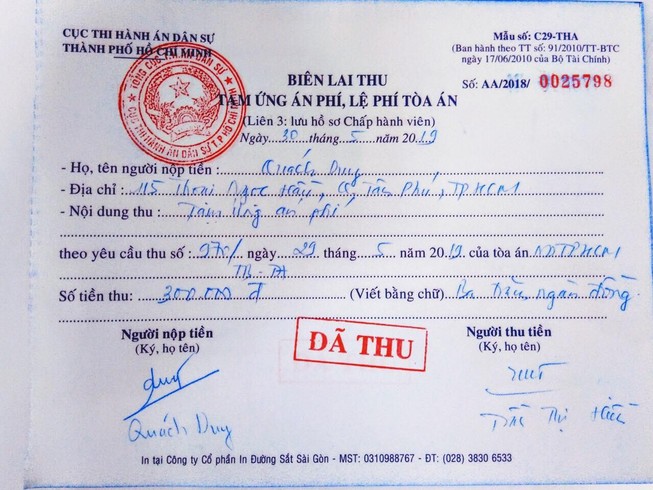 CỤC THI HÀNH ÁN DÂN SỰ
THÀNH PHỐ HỒ CHÍ MINH
Mẫu số: C29-THA
(Ban hành theo TT số: 91/2010/TT-BTC
ngày 17/06/2010 của Bộ Tài Chính)
Số: AA/2018/ 0025798
BIÊN LAI THU
TẠM ỨNG ÁN PHÍ, LỆ PHÍ TÒA ÁN
(Liên 3: lưu hồ sơ Chấp hành viên)
Ngày 30 tháng 5 năm 2019
- Họ, tên người nộp tiền: Quách Duy
- Địa chỉ: 115 Thoại Ngọc Hầu, Q Tân Phú, TPHCM
- Nội dung thu: Tạm ứng án phí
theo yêu cầu thu số: 270/ ngày 29 tháng 5 năm 2019 của tòa án NDTPHCM
TB-TA
Số tiền thu: 300.000 đ (Viết bằng chữ) Ba trăm ngàn đồng
Người nộp tiền
(Ký, họ tên)
ĐÃ THU
Người thu tiền
(Ký, họ tên)
Duy
Quách Duy
In tại Công ty Cổ phần In Đường Sắt Sài Gòn - MST: 0310988767 - ĐT: (028) 3830 6533